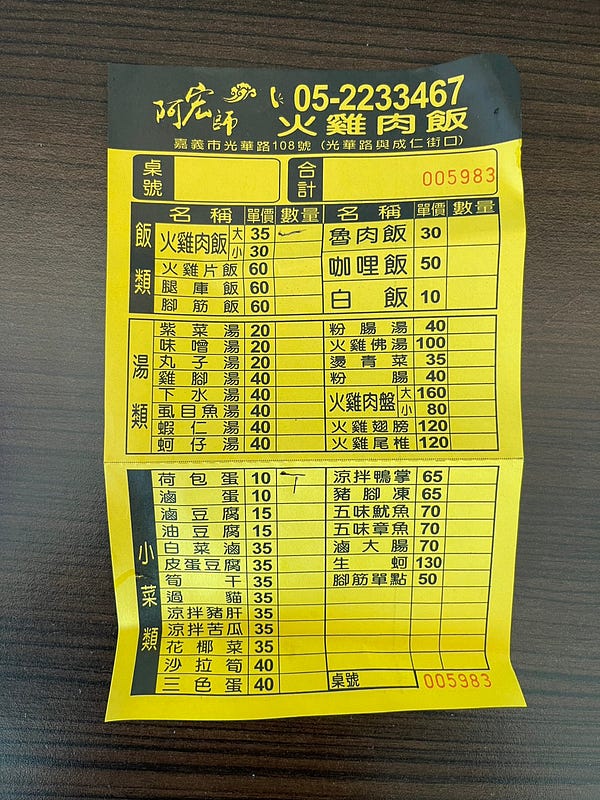 阿宏師 05-2233467
火雞肉飯
嘉義市光華路108號（光華路與成仁街口）
桌號 合計 005983
飯類
名稱 單價 數量 名稱 單價 數量
火雞肉飯 大 35 魯肉飯 30
小 30
火雞片飯 60 咖哩飯 50
腿庫飯 60
腳筋飯 60 白飯 10
湯類
紫菜湯 20 粉腸湯 40
味噌湯 20 火雞佛湯 100
丸子湯 20 燙青菜 35
雞腳湯 40 粉腸 40
下水湯 40 火雞肉盤 大 160
虱目魚湯 40 小 80
蝦仁湯 40 火雞翅膀 120
蚵仔湯 40 火雞尾椎 120
小菜類
荷包蛋 10 涼拌鴨掌 65
滷蛋 10 豬腳凍 65
滷豆腐 15 五味魷魚 70
油豆腐 15 五味章魚 70
白菜滷 35 滷大腸 70
皮蛋豆腐 35 生蚵 130
筍干 35 腳筋單點 50
過貓 35
涼拌豬肝 35
涼拌苦瓜 35
花椰菜 35
沙拉筍 40
三色蛋 40 桌號 005983